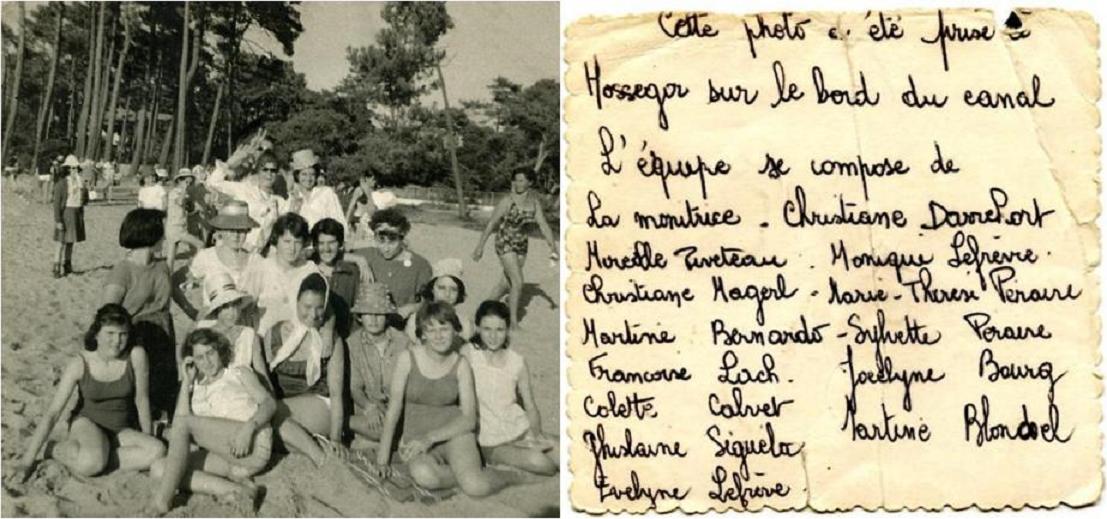 Cette photo a été prise à
Hossegor sur le bord du canal
L'équipe se compose de
La monitrice - Christiane Davrehort
Mireille Puveteau . Monique Lefèvre.
Christiane Magerl - Marie-Thérèse Peraire
Martine Bernardo - Sylvette Peraire
Francoise Lach. Jocelyne Bourg
Colette Calvet
Martine Blondel
Ghislaine Siguela
Evelyne Lefèvre.